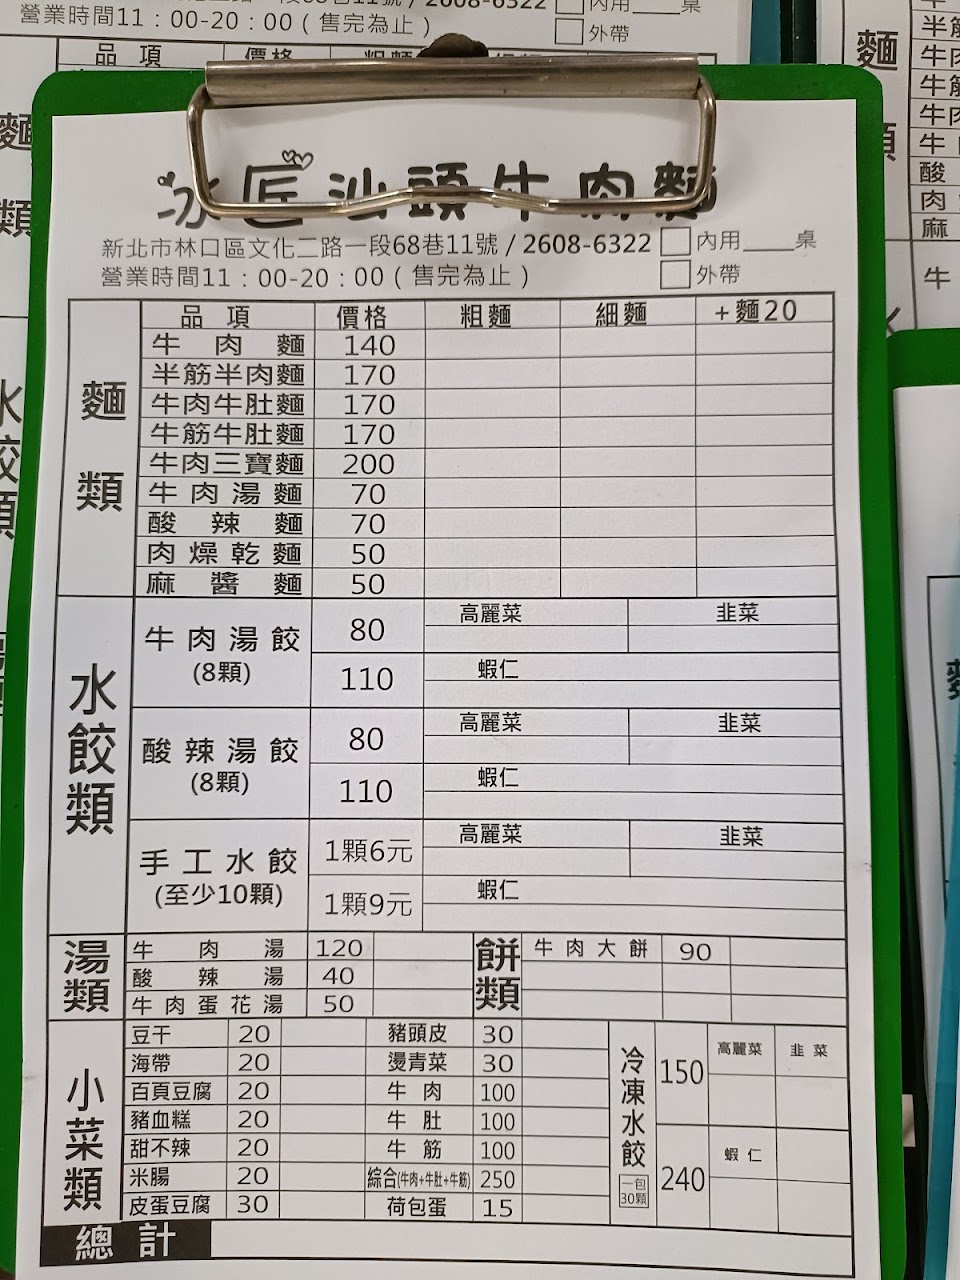 冰匠汕頭牛肉麵
新北市林口區文化二路一段68巷11號 / 2608-6322 內用____桌
營業時間11：00-20：00 ( 售完為止 ) 外帶
品項 價格 粗麵 細麵 +麵20
麵類
牛肉麵 140
半筋半肉麵 170
牛肉牛肚麵 170
牛筋牛肚麵 170
牛肉三寶麵 200
牛肉湯麵 70
酸辣麵 70
肉燥乾麵 50
麻醬麵 50
水餃類
牛肉湯餃 (8顆)
80 高麗菜 韭菜
110 蝦仁
酸辣湯餃 (8顆)
80 高麗菜 韭菜
110 蝦仁
手工水餃 (至少10顆)
1顆6元 高麗菜 韭菜
1顆9元 蝦仁
湯類
牛肉湯 120
酸辣湯 40
牛肉蛋花湯 50
餅類
牛肉大餅 90
小菜類
豆干 20
海帶 20
百頁豆腐 20
豬血糕 20
甜不辣 20
米腸 20
皮蛋豆腐 30
豬頭皮 30
燙青菜 30
牛肉 100
牛肚 100
牛筋 100
綜合(牛肉+牛肚+牛筋) 250
荷包蛋 15
冷凍水餃
一包
30顆
150 高麗菜 韭菜
240 蝦仁
總計
營業時間11：00-20：00 (售完為止)
內用____桌
外帶
品項 價格